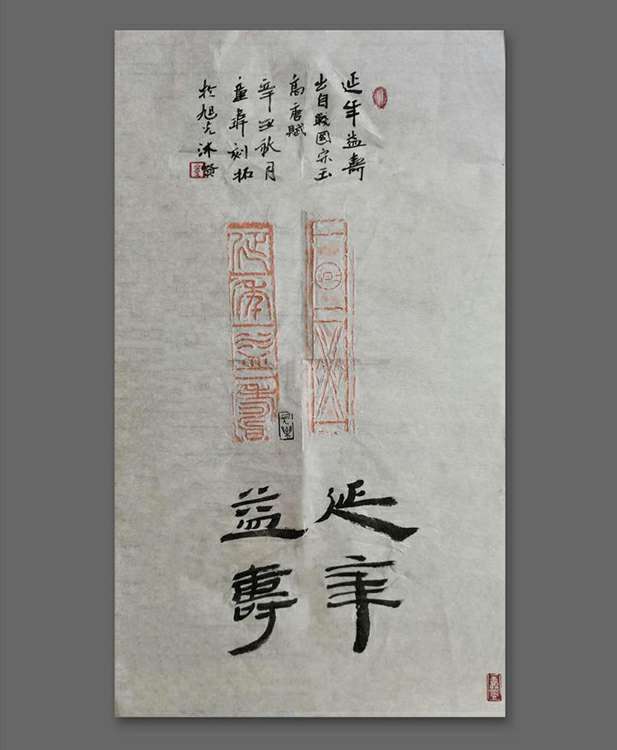 延年益壽
出自戰國宋玉
高唐賦
辛丑秋月
刻拓
於旭光
延年益壽
延年
益壽